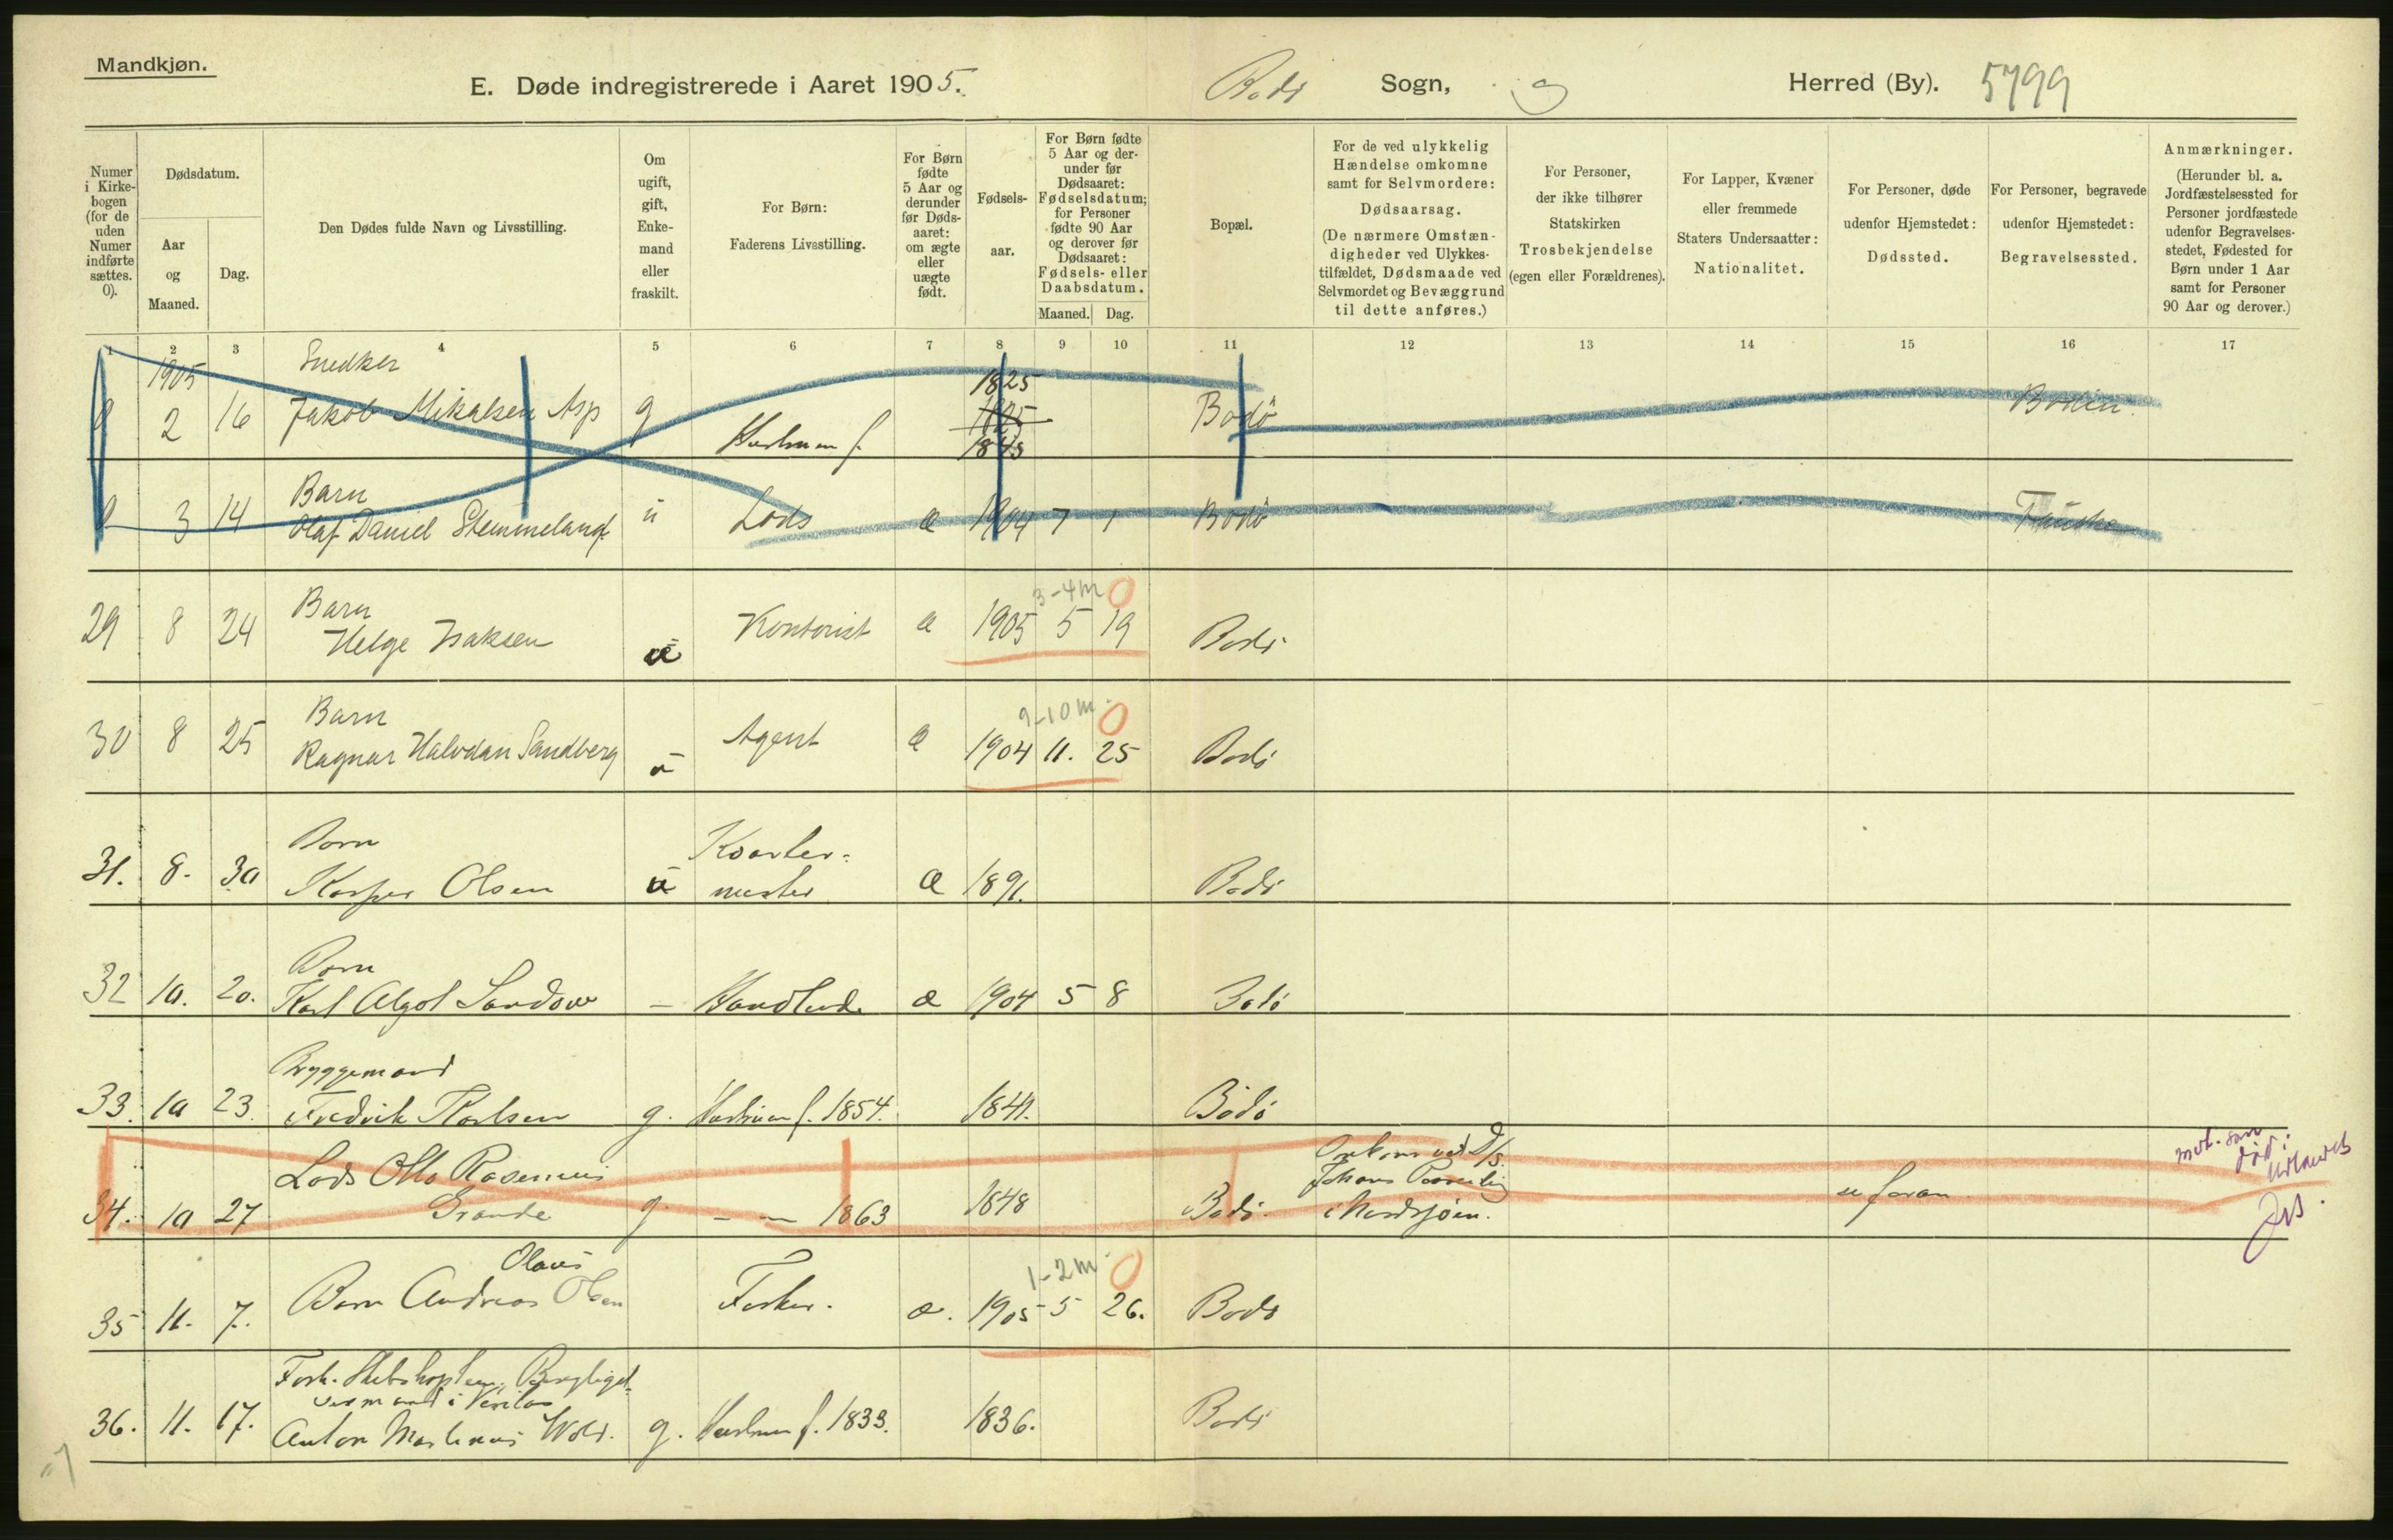 Mandkjøn.
E. Døde indregistrerede i Aaret 1905.
Bodø Sogn, Herred (By). 5799
Numer i Kirke-bogen (for de uden Numer indførte sættes. 0).
Dødsdatum.
Aar og Maaned.
Dag.
Den Dødes fulde Navn og Livsstilling.
Om ugift, gift, Enke-mand eller fraskilt.
For Børn: Faderens Livsstilling.
For Børn fødte 5 Aar og derunder før Døds-aaret: om ægte eller uægte født.
Fødsels-aar.
For Børn fødte 5 Aar og der-under før Dødsaaret: Fødselsdatum; for Personer fødte 90 Aar og derover før Dødsaaret: Fødsels- eller Daabsdatum.
Maaned. Dag.
Bopæl.
For de ved ulykkelig Hændelse omkomne samt for Selvmordere: Dødsaarsag. (De nærmere Omstæn-digheder ved Ulykkes-tilfældet, Dødsmaade ved Selvmordet og Bevæggrund til dette anføres.)
For Personer, der ikke tilhører Statskirken Trosbekjendelse (egen eller Forældrenes).
For Lapper, Kvæner eller fremmede Staters Undersaatter: Nationalitet.
For Personer, døde udenfor Hjemstedet: Dødssted.
For Personer, begravede udenfor Hjemstedet: Begravelsessted.
Anmærkninger. (Herunder bl. a. Jordfæstelsessted for Personer jordfæstede udenfor Begravelses-stedet, Fødested for Børn under 1 Aar samt for Personer 90 Aar og derover.)
1 2 3 4 5 6 7 8 9 10 11 12 13 14 15 16 17
1905 Snedker 1825
0 2 16 Jakob Mikalsen Asp g Hustruen f. 1825 1845 Bodø Bodin.
Barn
0 3 14 Olaf Daniel Stemmeland ú Lods æ 1904 7 1 Bodø Fauske
Barn 3-4 m 0
29 8 24 Helge Isaksen ú Kontorist æ 1905 5 19 Bodø
Barn 9-10 m. 0
30 8 25 Ragnar Halvdan Sandberg Agent æ 1904 11. 25 Bodø
Barn Kvarter-
31. 8. 30 Kasper Olsen ú mester æ 1891. Bodø
Barn
32 10. 20. Karl Algot Sandow — Handlende æ 1904 5 8 Bodø
Bryggemand
33. 10 23. Fredrik Karlsen g. Hustruen f. 1854. 1841. Bodø
Lods Otto Rasmus Omkom ved D/S.
34. 10 27 Grande g — — 1863 1848 Bodø. i Nordsjøen. se foran
død i Udlandet
Olaus 1-2 m. 0
35 11. 7. Barn Andreas Olsen Fisker. æ. 1905 5 26. Bodø
Forh. Skibskaptein,
mand i Veritas
36. 11. 17. Anton Martinus Wold. g. Hustruen f. 1833. 1836. Bodø